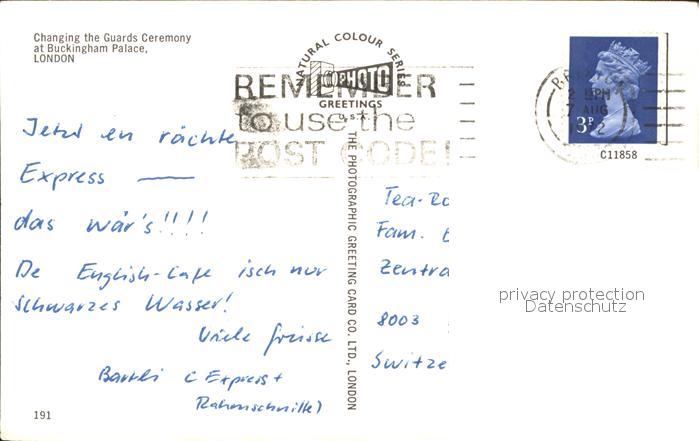 Changing the Guards Ceremony
at Buckingham Palace,
LONDON
Jetzt en rächte
Express —
das wär's!!!!
De English-Cafe isch nur
schwarzes Wasser!
Viele Grüsse
(Express +
Rahmschnitte)
191
NATURAL COLOUR SERIES
PHOTO
GREETINGS
THE PHOTOGRAPHIC GREETING CARD CO. LTD., LONDON
REMEMBER
to use the
POST CODE!
PM
7 AUG
3P
C11858
Tea-Ro
Fam.
Zentra
8003
Switze
privacy protection
Datenschutz